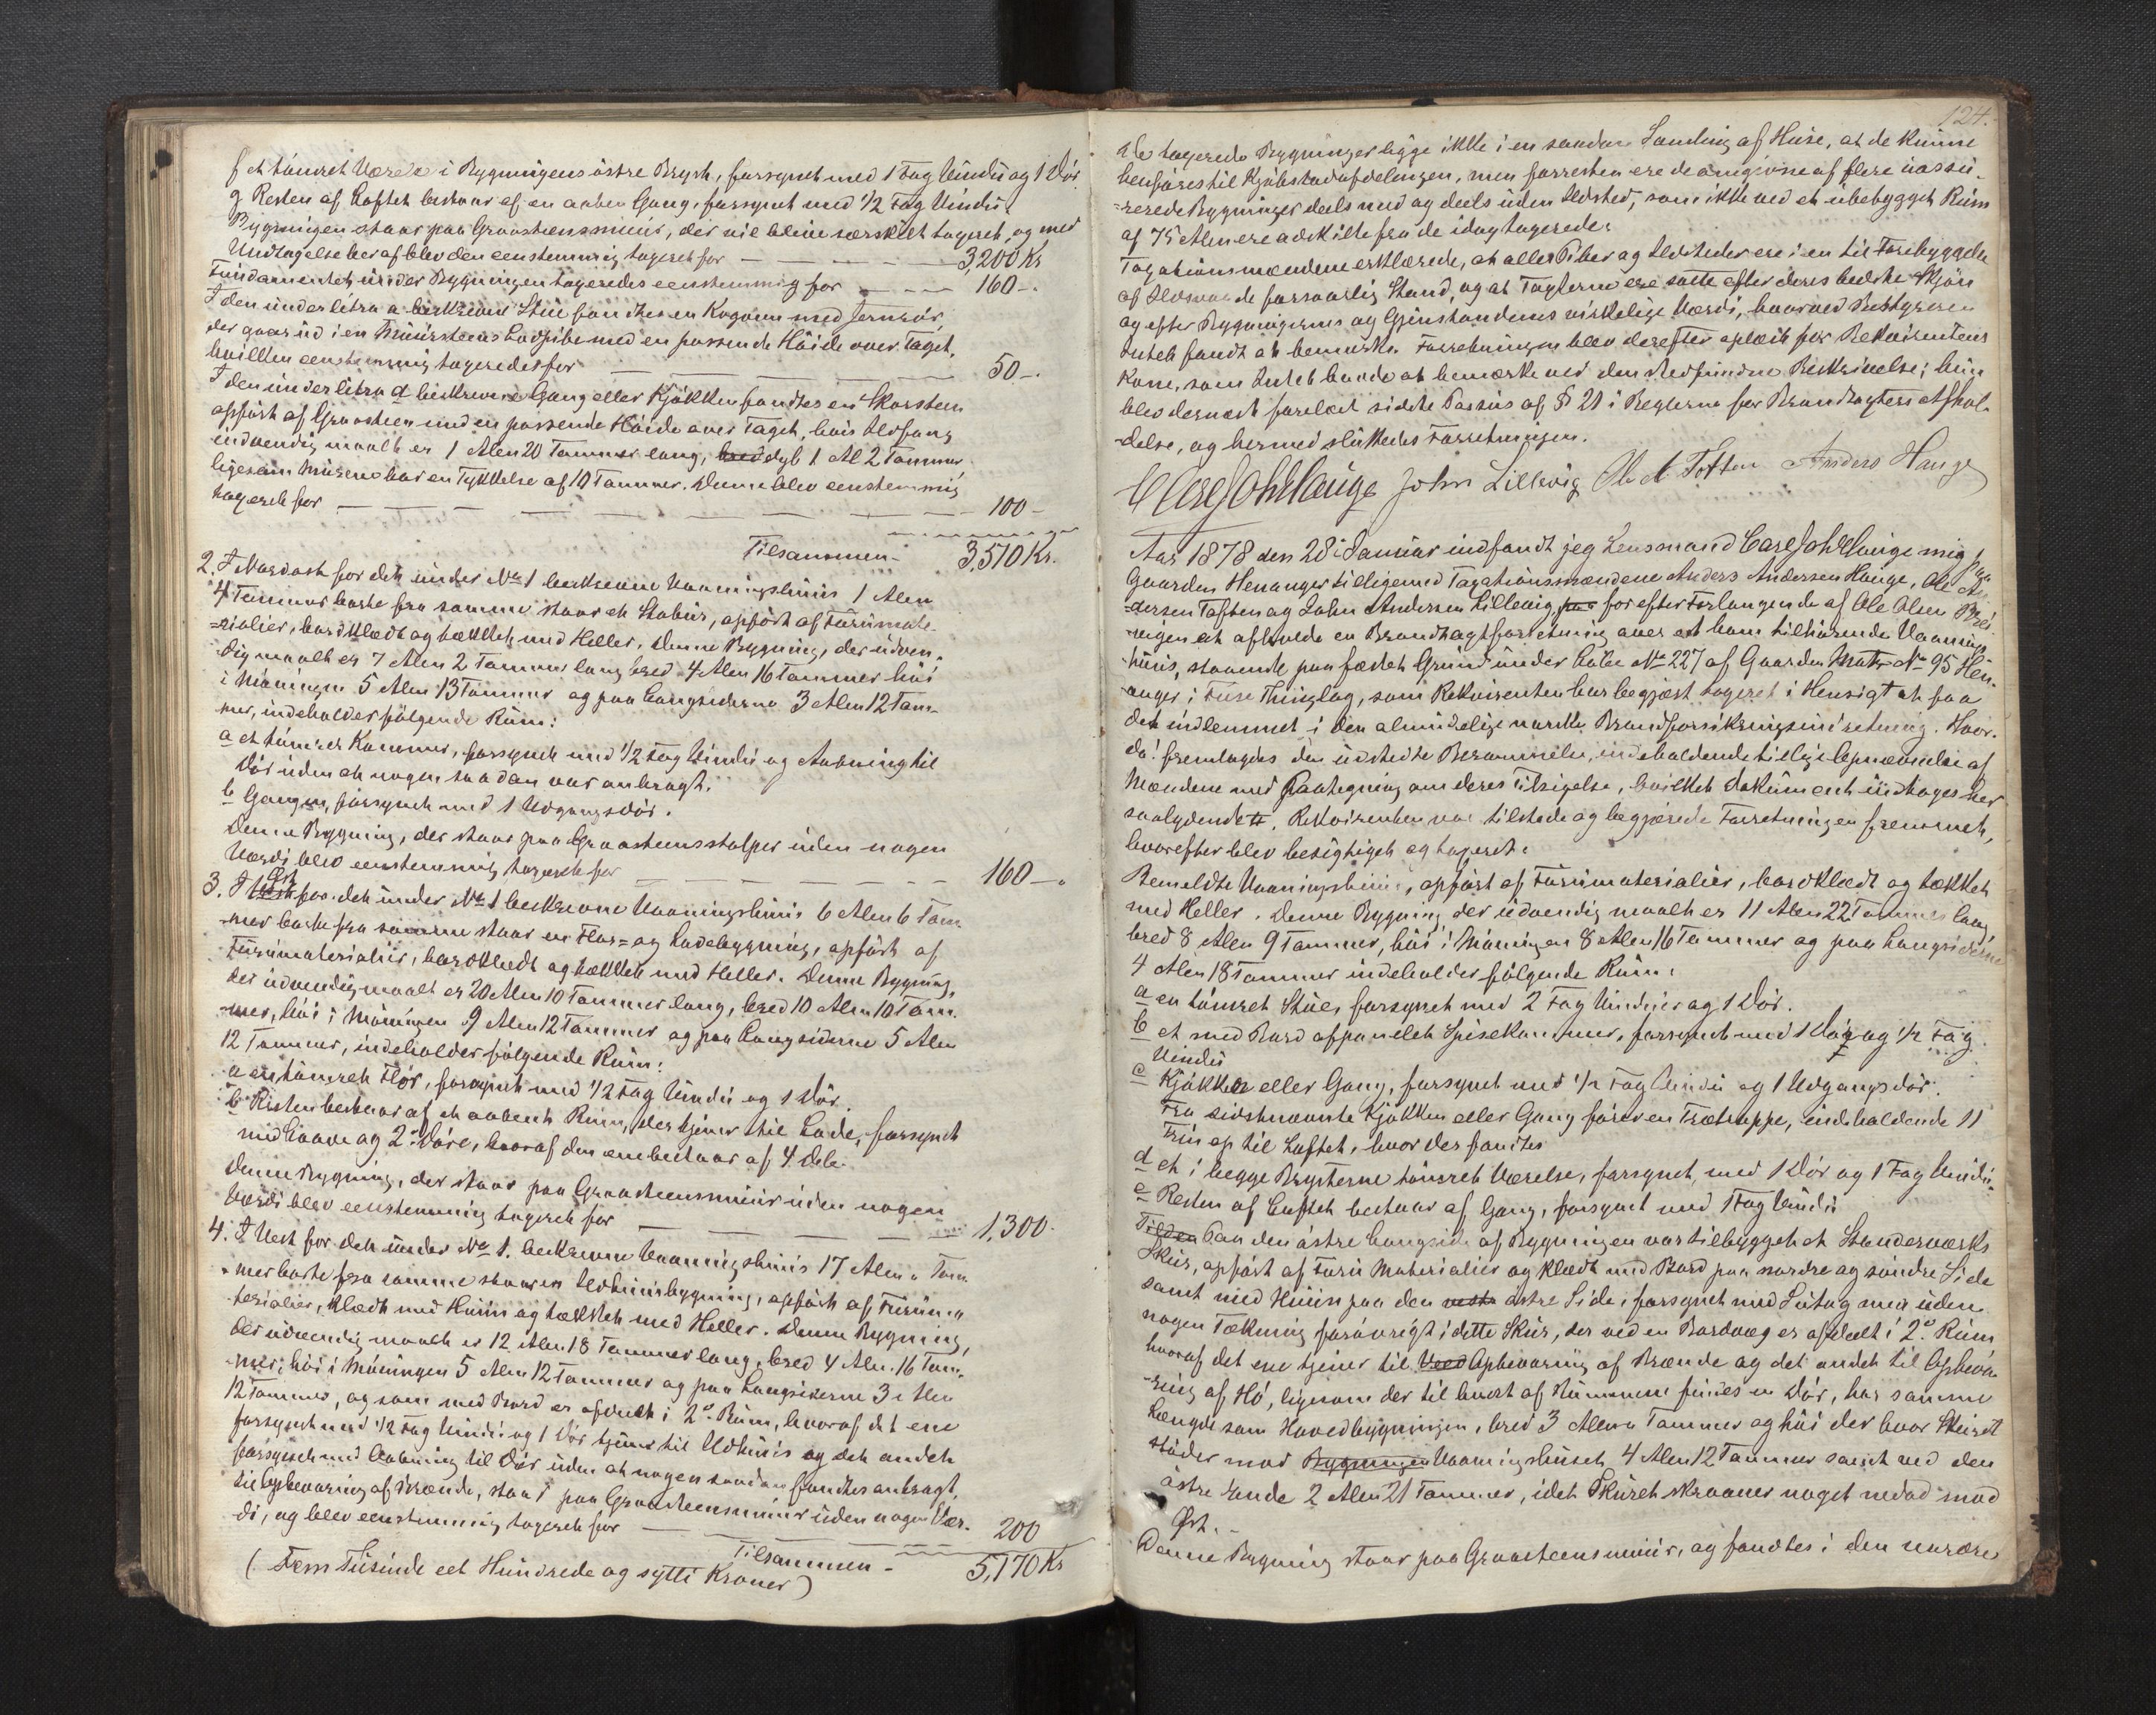 f et tømret Værelse i Bygningens østre Bryst, forsynet med 1 Fag Vindu og 1 Dør
g Resten af Loftet bestaar af en aaben Gang, forsynet med 1/2 Fag Vindu.
Bygningen staar paa Graasteensmuur, der vil blive særskilt taxeret, og med
Undtagelse heraf blev den eenstemmig taxeret for — 3,200 Kr
Fundamentet under Bygningen taxeredes eenstemmig for — 160 -.
I den under litra a beskrevne Stue fandtes en Kogovn med Jernrør,
der gaar ud i en Muursteens Lodpibe med en passende Höide over Taget,
hvilken eenstemmig taxeredes for — 50 -.
I den under litra d beskrevne Gang eller Kjøkken fandtes en Skorsteen
opført af Graasteen med en passende Höide over Taget, hvis Ildfang
indvendig maalt er 1 Alen 20 Tommer lang, bred dyb 1 Al 2 Tommer,
ligesom Murene har en Tykkelse af 10 Tommer. Denne blev eenstemmig
taxeret for — 100 -
Tilsammen - 3,510 Kr.
2. I Nordost for det under No 1 beskrevne Vaaningshuus 1 Alen
4 Tommer borte fra samme staar et Stabur, opført af Furumate-
-rialier, bordklædt og tækket med Heller. Denne Bygning, der udven-
dig maalt er 7 Alen 2 Tommer lang, bred 4 Alen 16 Tommer höi
i Møningen 5 Alen 13 Tommer og paa Langsiderne 3 Alen 12 Tom-
mer, indeholder følgende Rum:
a et tømret Kammer, forsynet med 1/2 Fag Vindu og Aabning til
Dör uden at nogen saadan var anbragt.
b Gangen, forsynet med 1 Udgangsdör.
Denne Bygning, der staar paa Graasteensstolper uden nogen
Værdi blev eenstemmig taxeret for — 160 —.
3. I Vest Øst for det under No 1 beskrevne Vaaningshuus 6 Alen 6 Tom-
mer borte fra samme staar en Flor- og Ladebygning, opført af
Furumaterialier, bordklædt og tækket med Heller. Denne Bygning,
der udvendig maalt er 20 Alen 10 Tommer lang, bred 10 Alen 10 Tom-
-mer, höi i Møningen 9 Alen 12 Tommer og paa Langsiderne 5 Alen
12 Tommer, indeholder følgende Rum:
a en tømret Flor, forsynet med 1/2 Fag Vindu og 1 Dör.
b Resten bestaar af et aabent Rum, der tjener til Lade, forsynet
med Laave og 2de Döre, hvoraf den ene bestaar af 4 Dele.
Denne Bygning, der staar paa Graasteensmuur uden nogen
Værdi blev eenstemmig taxeret for — 1,300.
4. I Vest for det under No 1. beskrevne Vaaningshuus 17 Alen " Tom-
mer borte fra samme staar en Udhuusbygning, opført af Furuma-
terialier, klædt med Huun og tækket med Heller. Denne Bygning,
der udvendig maalt er 12 Alen 18 Tommer lang, bred 4 Alen 16 Tom-
-mer, höi i Møningen 5 Alen 12 Tommer og paa Langsiderne 3 Alen
12 Tommer, og som med Bord er afdeelt i 2de Rum, hvoraf det ene
forsynet med 1/2 Fag Vindu og 1 Dör tjener til Udhuus og det andet
forsynet med Aabning til Dör uden at nogen saadan fandtes anbragt,
til Opbevaring af Brænde, staar paa Graasteensmuur uden nogen Vær-
di, og blev eenstemmig taxeret for — 200
Tilsammen - 5,170 Kr
( Fem Tusinde eet Hundrede og sytti Kroner )
124.
De taxerede Bygninger ligge ikke i en saadan Samling af Huse, at de kunne
henføres til Kjøbstadafdelingen, men forresten ere de omgivne af flere uassu-
-rerede Bygninger deels med og deels uden Ildsted, som ikke ved et ubebygget Rum
af 75 Alen ere adskilte fra de idag taxerede.
Taxationsmændene erklærede, at alle Piber og Ildsteder ere i en til Forebyggelse
af Ildsvaade forsvarlig Stand, og at Taxterne ere satte efter deres bedste Skjön
og efter Bygningernes og Gjenstandenes virkelige Værdi, hvorved Bestyreren
Intet fandt at bemærke. Forretningen blev derefter oplæst for Rekvirentens
Kone, som Intet havde at bemærke ved den stedfundne Beskrivelse; hun
blev dernæst forelæst sidste Passus af § 21 i Reglerne for Brandtaxters Afhol-
-delse, og hermed sluttedes Forretningen.
Carl Joh Hauge John Lillevig Ole A. Toften Anders Hauge
Aar 1878 den 28de Januar indfandt jeg Lensmand Carl Joh Hauge mig paa
Gaarden Henanger tilligemed Taxationsmændene Anders Andersen Hauge, Ole An-
-dersen Toften og John Andersen Lillevig, paa for efter Forlangende af Ole Olsen
at afholde en Brandtaxtforretning over et ham tilhørende Vaanings-
huus, staaende paa fæstet Grund under Löbe No 227 af Gaarden Matr No 95 Hen-
anger i Fuse Thinglag, som Rekvirenten har begjært taxeret i Hensigt at faa
det indlemmet i den almindelige norske Brandforsikringsindretning. Hvor-
da! fremlagdes den udstedte Berammelse, indeholdende tillige Opnævnelse af
Mændene med Paategning om deres Tilsigelse, hvilket Dokument indtages her
saalydende #. Rekvirenten var tilstede og begjærede Forretningen fremmet,
hvorefter blev besigtiget og taxeret:
Bemeldte Vaaningshuus, opført af Furumaterialier, bordklædt og tækket
med Heller. Denne Bygning der udvendig maalt er 11 Alen 22 Tommer lang,
bred 8 Alen 9 Tommer, höi i Møningen 8 Alen 16 Tommer og paa Langsiderne
4 Alen 18 Tommer indeholder følgende Rum:
a en tømret Stue, forsynet med 2 Fag Vinduer og 1 Dör.
b et med Bord afpanelet Spisekammer, forsynet med 1 Dör og 1/2 Fag
Vindu
c Kjøkken eller Gang, forsynet med 1/2 Fag Vindu og 1 Udgangsdör.
Fra sidstnævnte Kjøkken eller Gang fører en Trætrappe, indeholdende 11
Trin op til Loftet, hvor der fandtes
d et i begge Brysterne tømret Værelse, forsynet med 1 Dör og 1 Fag Vindu.
e Resten af Loftet bestaar af Gang, forsynet med 1 Fag Vindu
Til den Paa den østre Langside af Bygningen var tilbygget et Standerværks
Skur, opført af Furu Materialier og klædt med Bord paa nordre og søndre Side
samt med Huun paa den vestr østre Side, forsynet med Sutag men uden
nogen Tækning forøvrigt i dette Skur, der ved en Bordvæg er afdeelt i 2de Rum
hvoraf det ene tjener til Veed Opbevaring af Brænde og det andet til Opbeva-
-ring af Hö, ligesom der til hvert af Rummene findes en Dör, har samme
Længde som Hovedbygningen, bred 3 Alen " Tommer og höi der hvor Skuret
støder mod Bygningen Vaaningshuset, 4 Alen 12 Tommer samt ved den
østre Ende 2 Alen 21 Tommer, idet Skuret skraaner noget nedad mod
Øst. -
Denne Bygning staar paa Graasteensmuur, og fandtes i den